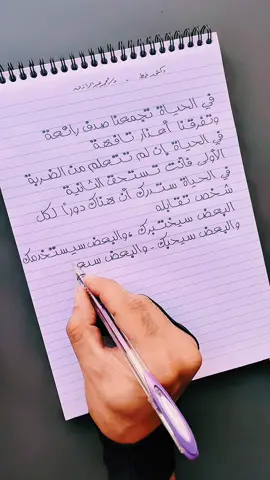 في الحياة تجمعنا صدف رائعة
وتفرقنا أعذار تافهة
في الحياة إن لم تتعلم من الضربة
الأولى فأنت تستحق الثانية
في الحياة ستدرك أن هناك دورًا لكل
شخص تقابله
البعض سيختبرك، والبعض سيستخدمك
والبعض سيحبك، والبعض سيع